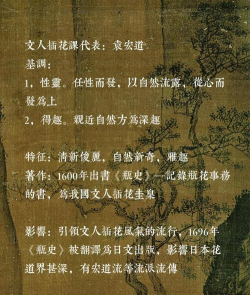 文人插花課代表：袁宏道
基調：
1，性靈。任性而發，以自然流露，從心而
發爲上
2，得趣。親近自然方爲深趣
特征：清新俊麗，自然新奇，雅趣
著作：1600年出書《瓶史》—記錄瓶花事務
的書，爲我國文人插花圭臬
影響：引領文人插花風氣的流行，1696年
《瓶史》被翻譯爲日文出版，影響日本花
道界甚深，有宏道流等流派流傳